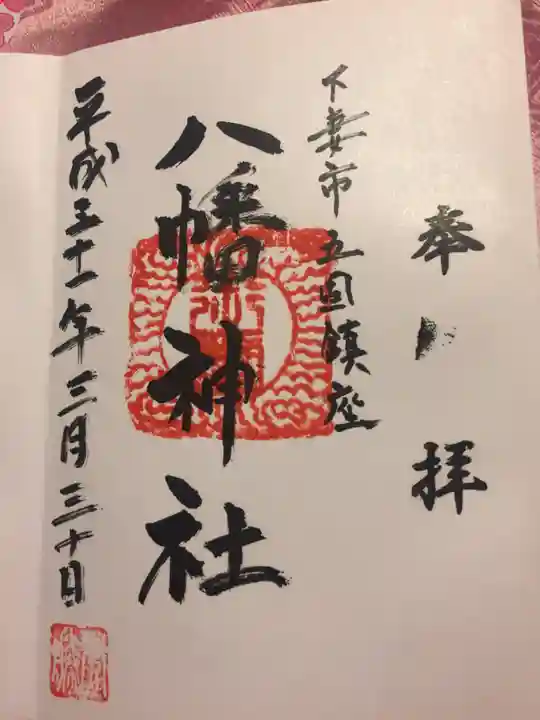 奉拝
下妻市五固鎮座
八幡神社
平成三十一年三月三十日